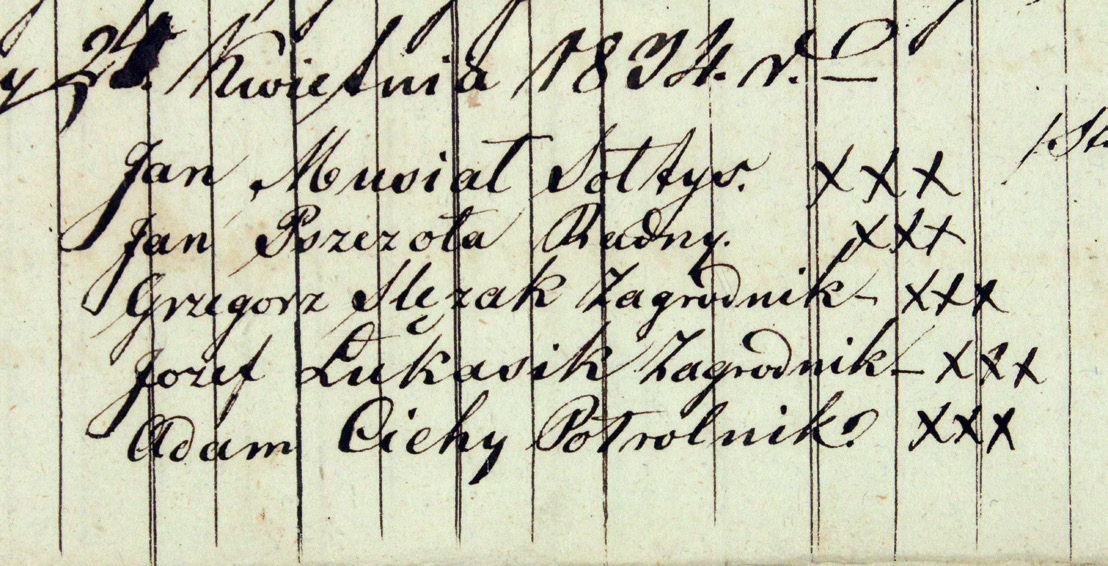 Kwietnia 1834. r.
Jan Musiał Sołtys. XXX
Jan Pszczoła Radny. XXX
Grzegorz Slęzak Zagrodnik - XXX
Jozef Łukasik Zagrodnik - XXX
Adam Cichy Połrolnik. XXX